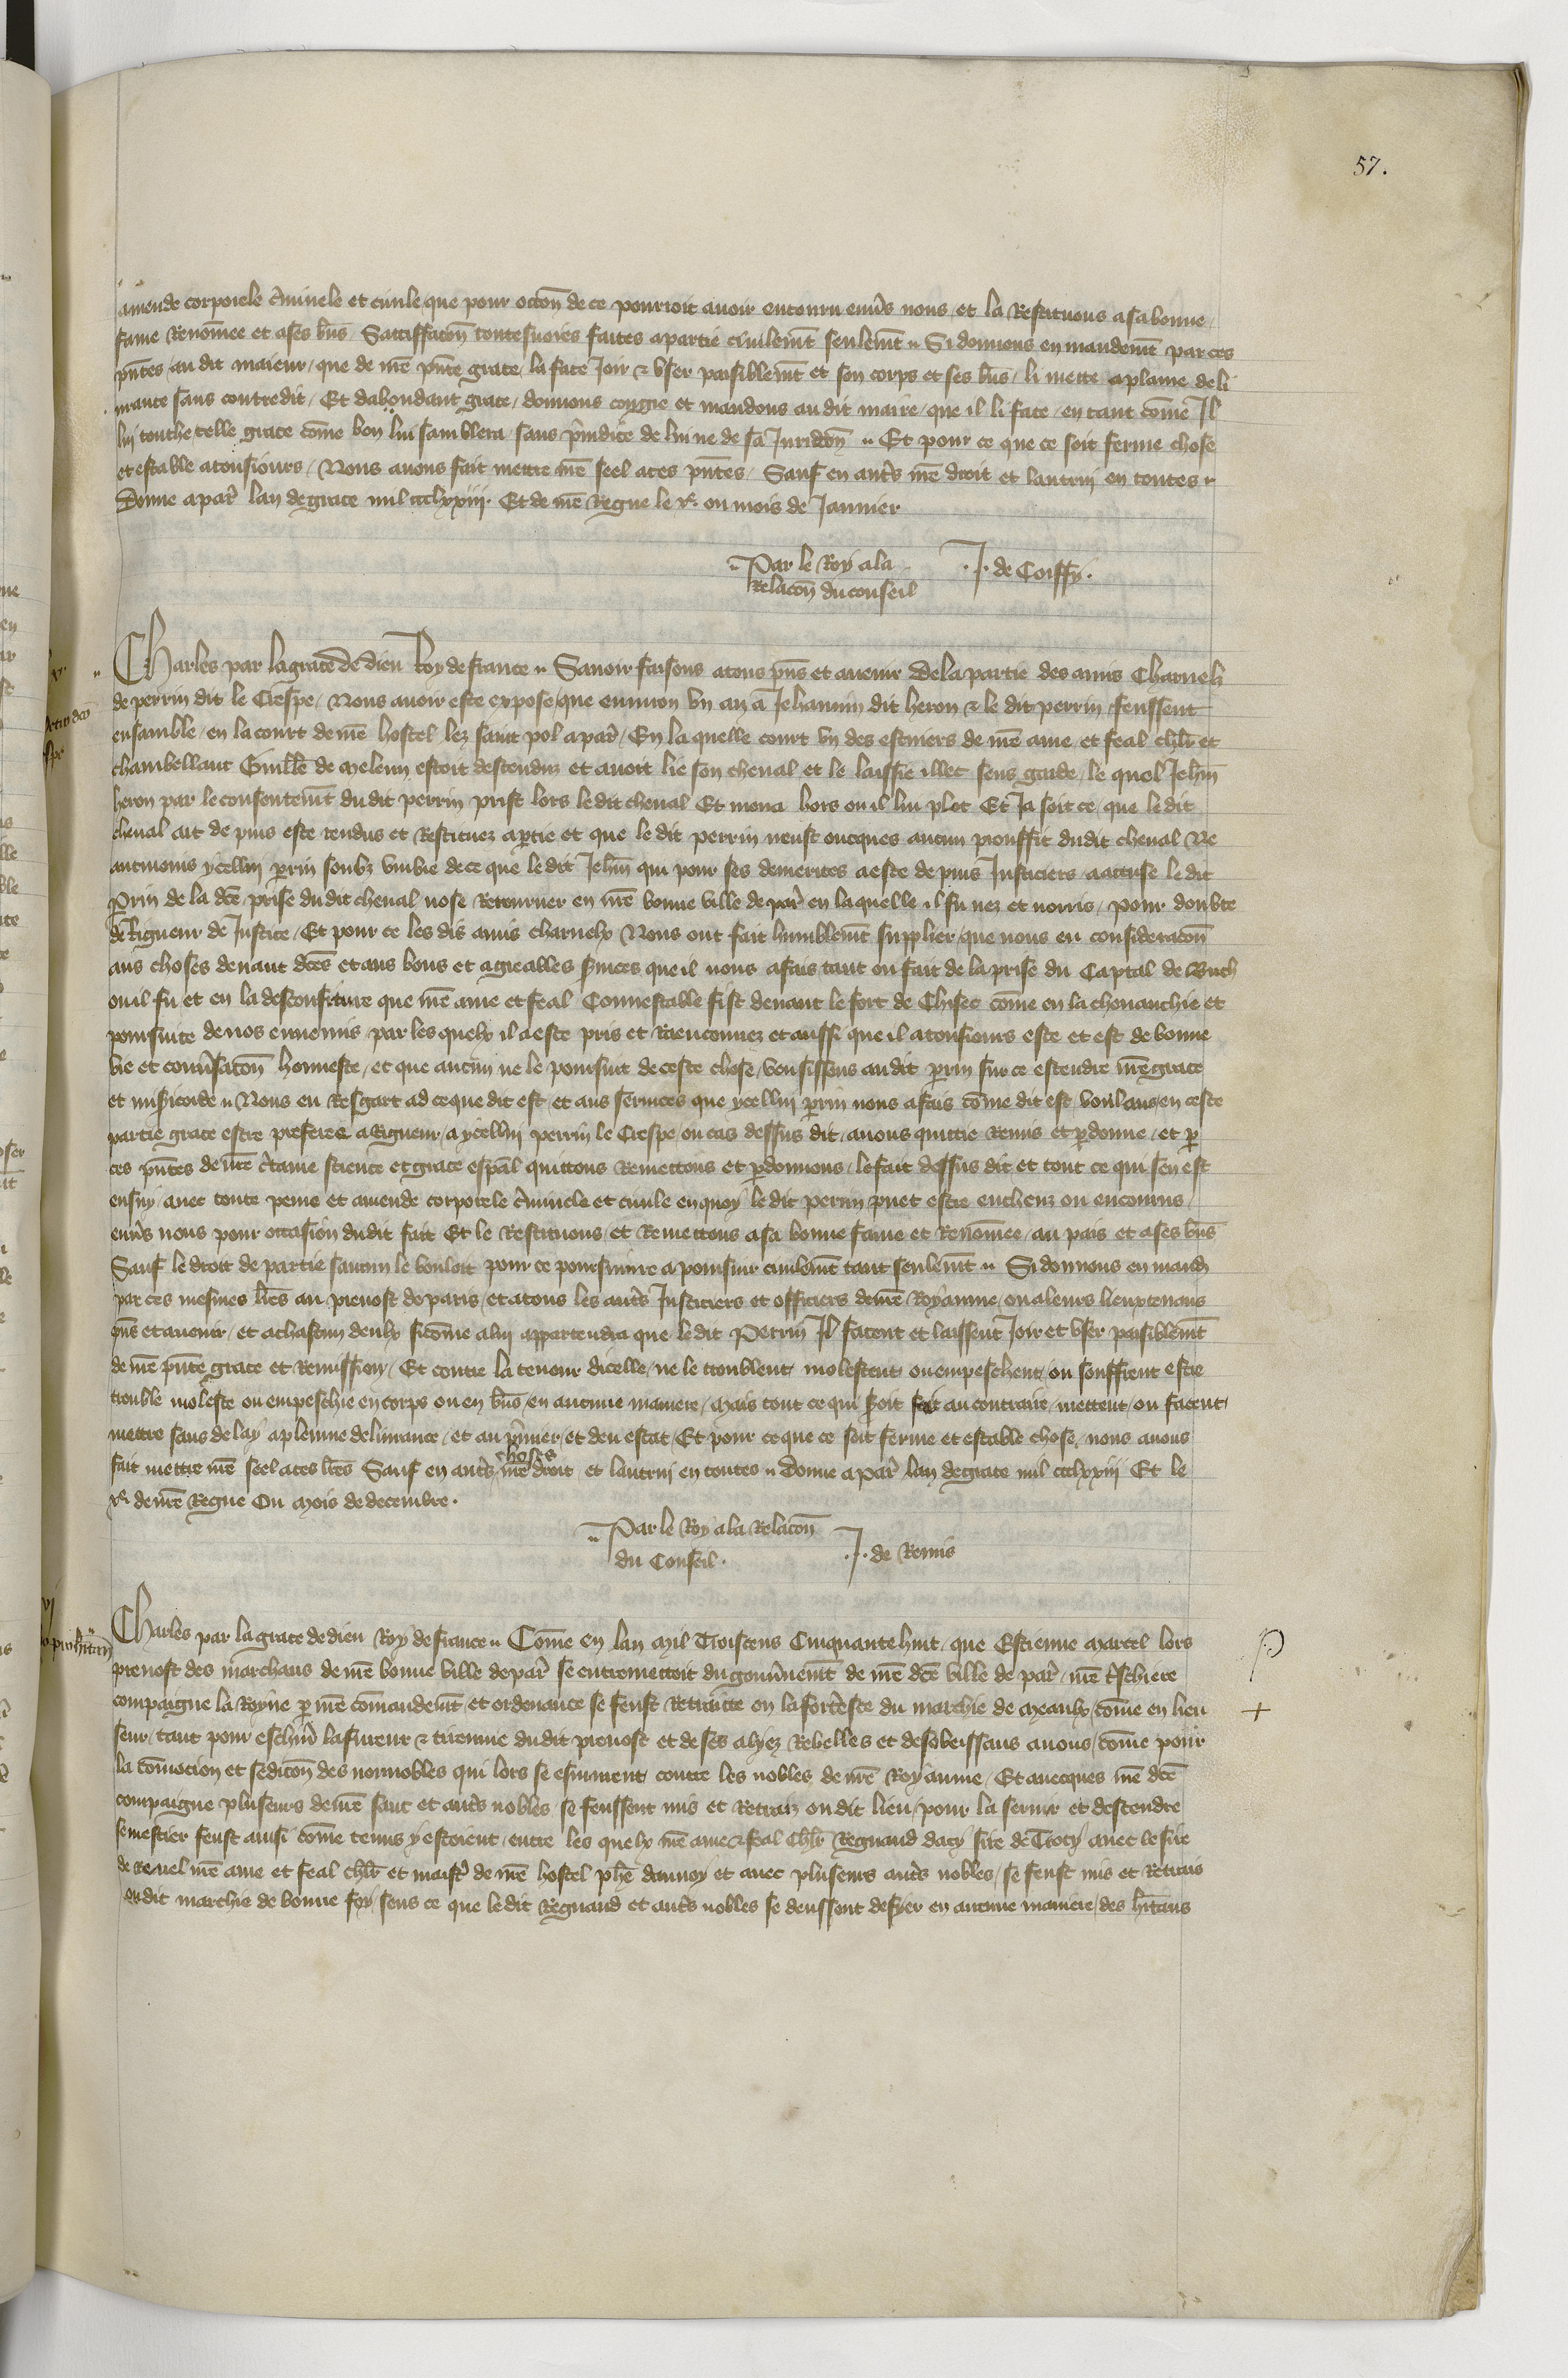 57.
amende corporele c̃iminele et ciuile que pour occõn de ce pourroit auoir encouru eñũs nous et la Restituons a sa bonne
fame Renõmee et a ses biẽs Satiffacõn toutesuoies faites a partie ciuilemt̃ seulemt̃ Si donnons en mandemt̃ par ces
pñtes au dit maieur que de nr̃e pñte grace la face Joir & vser paisiblemt̃ et son corps et ses bñs li mette a plaine deli
urance sans contredit Et dabondant grace donnons congie et mandons au dit maire que il li face en tant cõme Il
lui touche telle grace cõme bon lui samblera sans p̃iudice de lui ne de sa Juridicõn Et pour ce que ce soit ferme chose
et estable a tousiours Nous auons fait mettre nr̃e seel a ces pñtes Sauf en autr̃s nr̃e droit et lautrui en toutes
Donne a par̃ lan de grace mil ccclxxiij. Et de nr̃e Regne le x.e ou mois de Januier
Par le Roy a la J. de Coiffy.
Relacõn du conseil
Charles par la grace de dieu Roy de france Sauoir faisons a tous pñs et auenir De la partie des amis Charnelz
de perrin dit le Crespe Nous auoir este expose que enuiron vn an a Jehannin dit heron & le dit perrin feussent
ensamble en la court de nr̃e hostel lez saint pol a par̃ En la quelle court vn des escuiers de nr̃e ame et feal chl̃r et
chambellant Guill̃e de meleun estoit descenduz et auoit lie son cheual et le laissie illec sens garde le quel Jeh̃n
heron par le consentemt̃ du dit perrin prist lors le dit cheual Et mena hors ou il lui plot Et Ja soit ce que le dit
cheual ait depuis este rendus et Restituez a p̱tie et que le dit perrin neust oncques aucun prouffit du dit cheual Ne
antmoins ycellui p̱rin soubz vmbre de ce que le dit Jeh̃n qui pour ses demerites a este depuis Justiciers a accuse le dit
P̱rin de la dc̃e prise du dit cheual nose Retourner en nr̃e bonne ville de par̃ en laquelle il fu nez et norris pour doubte
de Rigueur de Justice Et pour ce les dis amis charnelx Nous ont fait humblemt̃ supplier que nous eu consideracõn
aus choses deuant dc̃es et aus bons et agreables s̃uices que il nous a fais tant ou fait de la prise du Captal de Buch
ou il fu et en la desconfiture que nr̃e ame et feal Connestable fist deuant le fort de Chisec cõme en la cheuauchie et
poursuite de nos ennemis par les quelx il a este pris et Raenconnez et aussi que il a tousiours este et est de bonne
vie et conũsacõn honneste et que aucun ne le poursuit de ceste chose voulsissens au dit p̱rin sur ce estendre nr̃e grace
et mis̃icorde Nous eu Resgart ad ce que dit est et aus seruices que ycellui p̱rin nous a fais cõme dit est voulans en ceste
partie grace estre preferee a Rigueur a ycellui perrin le Crespe ou cas dessus dit auons quittie Remis et p̱donne et p̱
ces pñtes de nr̃e c̃taine science et grace esp̃al quittons Remettons et p̱donnons le fait dessus dit et tout ce qui sen est
ensuy auec toute peine et amende corporele c̃iminele et ciuile en quoy le dit perrin puet estre encheuz ou encourus
enũs nous pour occasion du dit fait Et le Restituons et Remettons a sa bonne fame et Renõmee au pais et a ses bñs
Sauf le droit de partie saucun le vouloit pour ce poursuiure a poursuir ciuilemt̃ tant seulemt̃ Si donnons en mand̃
par ces mesmes lr̃es au preuost de paris et a tous les autr̃s Justiciers et officiers de nr̃e Royaume ou a leurs lieuxtenans
pñs et auenir et a chascun deulx si cõme a lui appartendra que le dit Perrin Il facent et laissent Joir et vser paisiblemt̃
de nr̃e pñte grace et Remission Et contre la teneur dicelle ne le troublent molestent ou empeschent ou seuffrent estre
trouble moleste ou empeschie en corps ou en bñs en aucune maniere Mais tout ce qui seroit fait au contraire mettent ou facent
mettre sans delay a pleinne deliurance et au p̃mier et deu estat Et pour ce que ce soit ferme et estable chose nous auons
fait mettre nr̃e seel a ces lr̃es Sauf en autr̃s choses nr̃e droit et lautrui en toutes Donne a par̃ lan de grace mil ccclxxiij Et le
x.e de nr̃e Regne Ou Mois de decembre.
Par le Roy a la Relacõn J. de Remis
du Conseil.
vj
Charles par la grace de dieu Roy de france Cõme en lan Mil Troiscens Cinquante huit que Estienne Marcel lors
preuost des marchans de nr̃e bonne ville de par̃ se entremettoit du gouũnemt̃ de nr̃e dc̃e ville de par̃ nr̃e tr̃schiere
compaigne la Royne p̱ nr̃e cõmandemt̃ et ordenance se feust Retraitte en la fortesce du marchie de Meaulx cõme en lieu
seur tant pour eschiuer la fureur & tirennie du dit preuost et de ses alyez Rebelles et desobeissans a nous cõme pour
la cõmocion et sedicõn des nonnobles qui lors se esmurent contre les nobles de nr̃e Royaume Et auecques nr̃e dc̃e
compaigne pluseurs de nr̃e sanc et autr̃s nobles se feussent mis et Retraiz ou dit lieu pour la seruir et deffendre
se mestier feust ainsi cõme tenus y estoient entre les quelx nr̃e ame & feal chl̃r Regnaud dacy sire de Trocy auec le sire
de Reuel nr̃e ame et feal chl̃r et maistr̃ de nr̃e hostel phẽ daunoy et auec pluseurs autr̃s nobles se feust mis et Retrais
ou dit marchie de bonne foy sens ce que le dit Regnaud et autr̃s nobles se deussent deffyer en aucune maniere des hĩtans